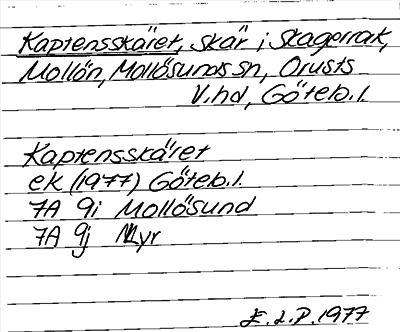 Kaptensskäret, skär i Skagerrak,
Mollön, Mollösunds sn, Orusts
V.hd, Göteb.l.
Kaptensskäret
ek (1977) Göteb.l.
7A 9i Mollösund
7A 9j Myr
E.L.P. 1977